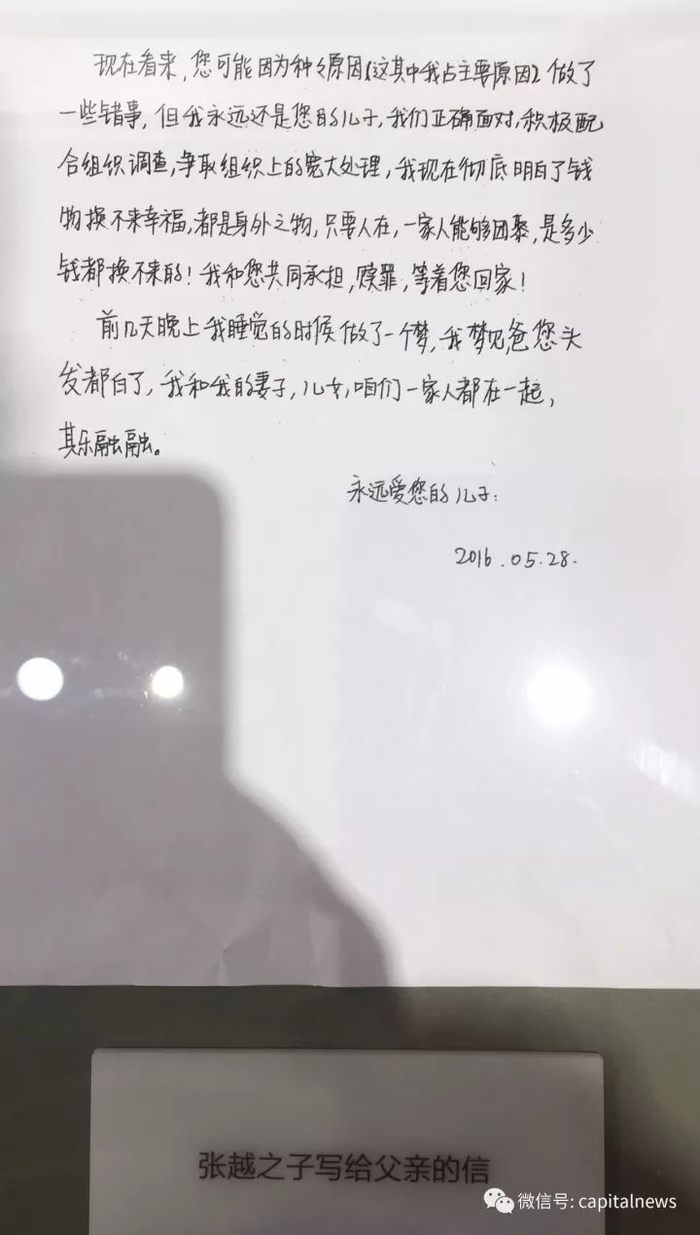 现在看来，您可能因为种々原因（这其中我占主要原因）做了
一些错事，但我永远还是您的儿子，我们正确面对，积极配
合组织调查，争取组织上的宽大处理，我现在彻底明白了钱
物换不来幸福，都是身外之物，只要人在，一家人能够团聚，是多少
钱都换不来的！我和您共同承担，赎罪，等着您回家！
前几天晚上我睡觉的时候做了一个梦，我梦见爸您头
发都白了，我和我的妻子，儿女，咱们一家人都在一起，
其乐融融。
永远爱您的儿子：
2016.05.28.
张越之子写给父亲的信
微信号: capitalnews